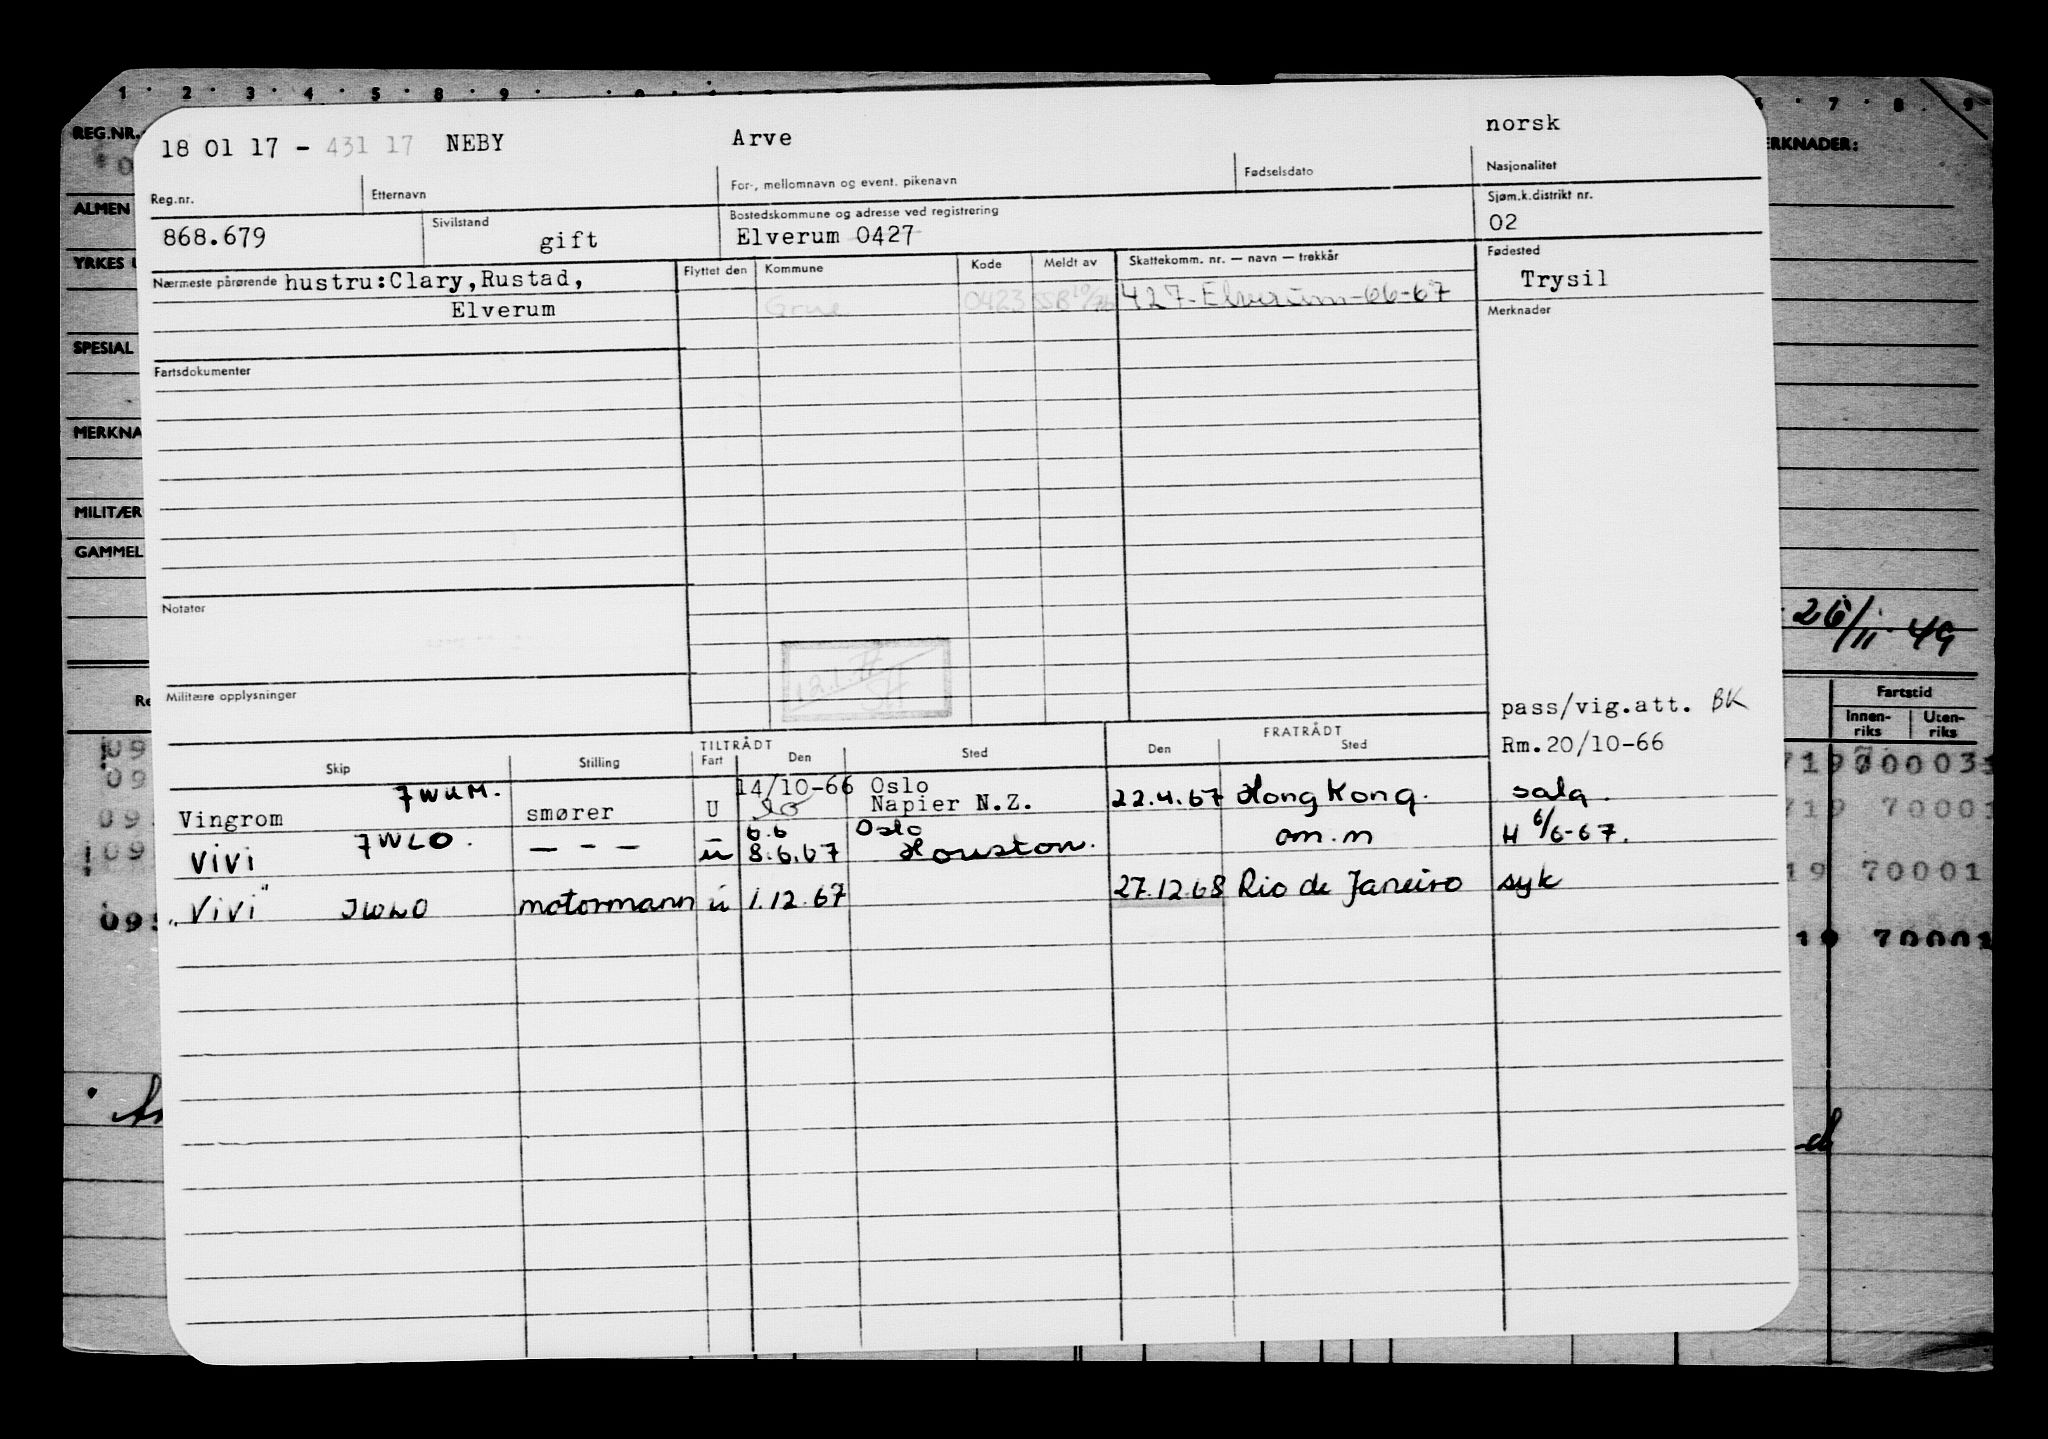 1 · 2 · 3 · 4 · 5 · 8 · 9 · 7 · 8 · 9
REG.NR.
ERKNADER:
ALMEN
YRKES
SPESIAL
MERKNA
MILITÆR
GAMMEL
18 01 17 - 431 17 NEBY Arve norsk
Reg.nr. Etternavn For-, mellomnavn og event. pikenavn Fødselsdato Nasjonalitet
868.679 Sivilstand gift Bostedskommune og adresse ved registrering Elverum 0427 Sjøm.k.distrikt nr. 02
Nærmeste pårørende hustru:Clary,Rustad,
Elverum
Flyttet den Kommune Kode Meldt av Skattekomm. nr. — navn — trekkår Fødested
Grue 0423 SSB 427-Elverum-66-67 Trysil
Merknader
Fartsdokumenter
Notater
Militære opplysninger
26/11-49
pass/vig.att. BK
Rm.20/10-66
TILTRÅDT FRATRÅDT
Skip Stilling Fart Den Sted Den Sted
Fartstid
Innen-riks Uten-riks
14/10-66 Oslo
Vingrom JWUM. smører U Napier N.Z. 22.4.67 Hong Kong.
6.6 Oslo
ViVi JWLO. — - — u 8.6.67 Houston. om.m H 6/6-67.
"ViVi" JWLO motormann u 1.12.67 27.12.68 Rio de Janeiro syk